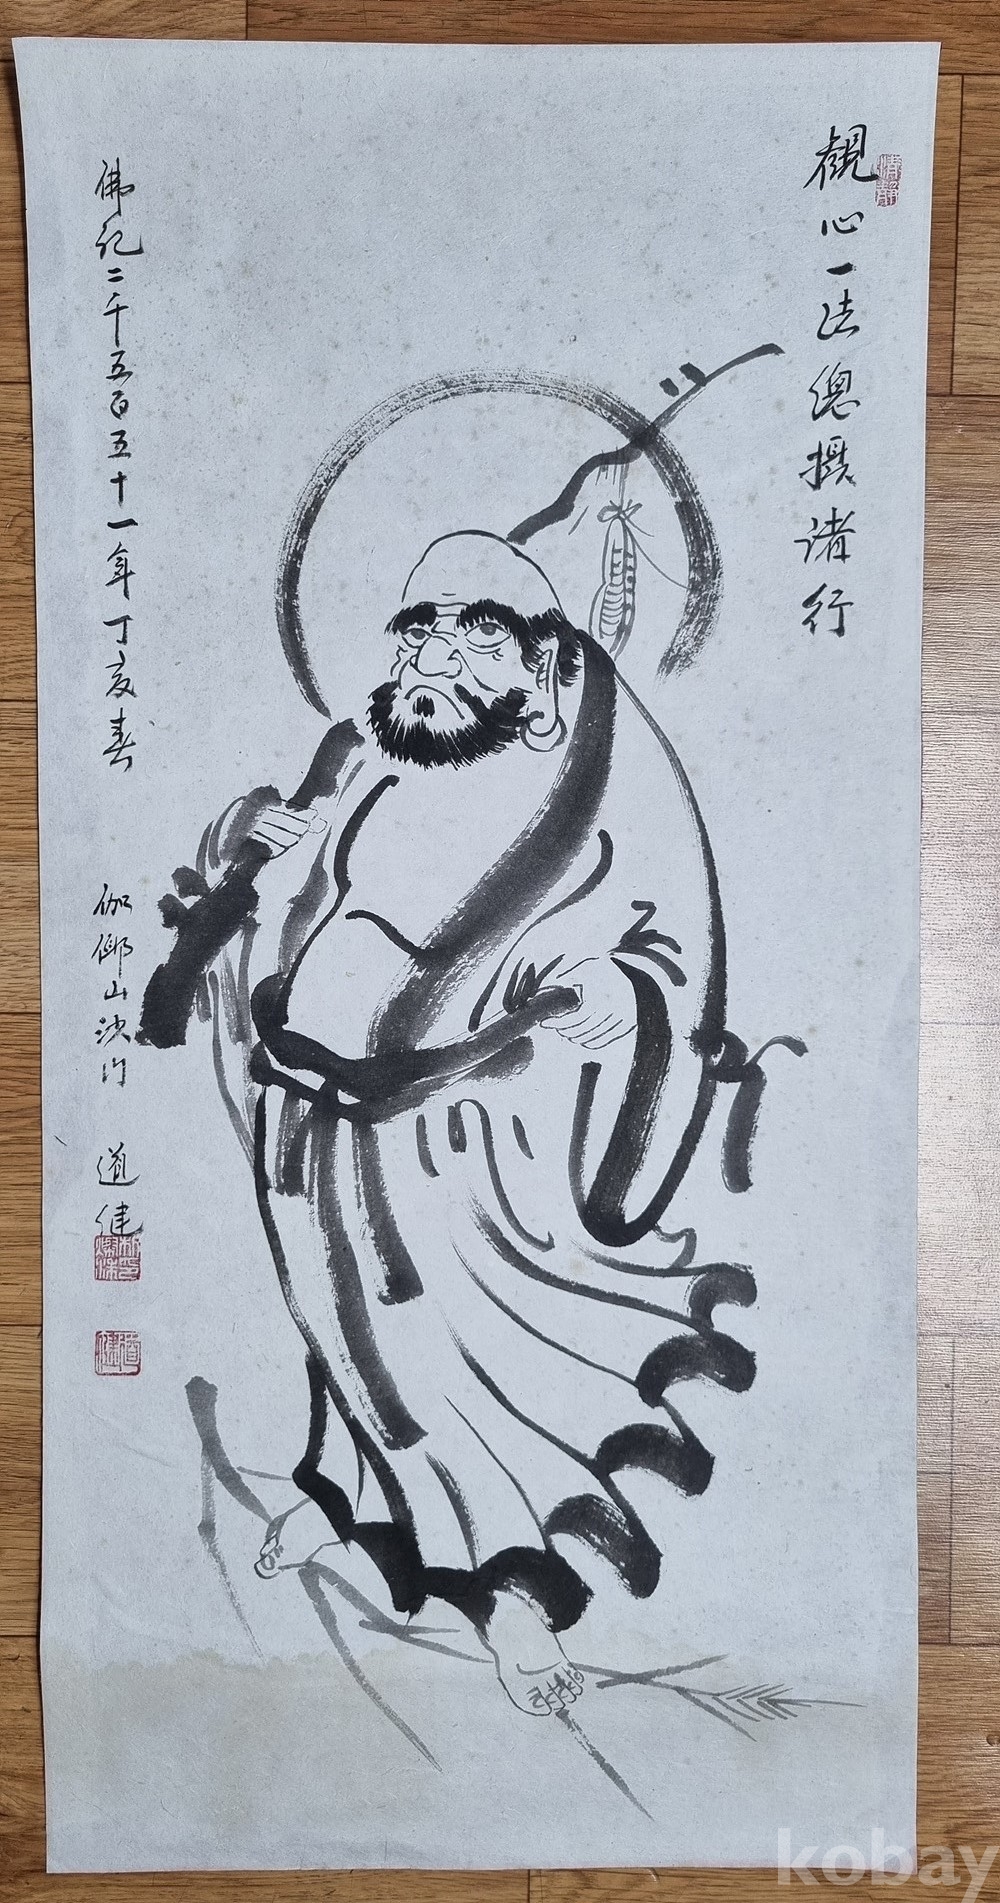 觀心一法總攝諸行
佛紀二千五百五十一年丁亥春
伽倻山沙门 道健
道健
kobay